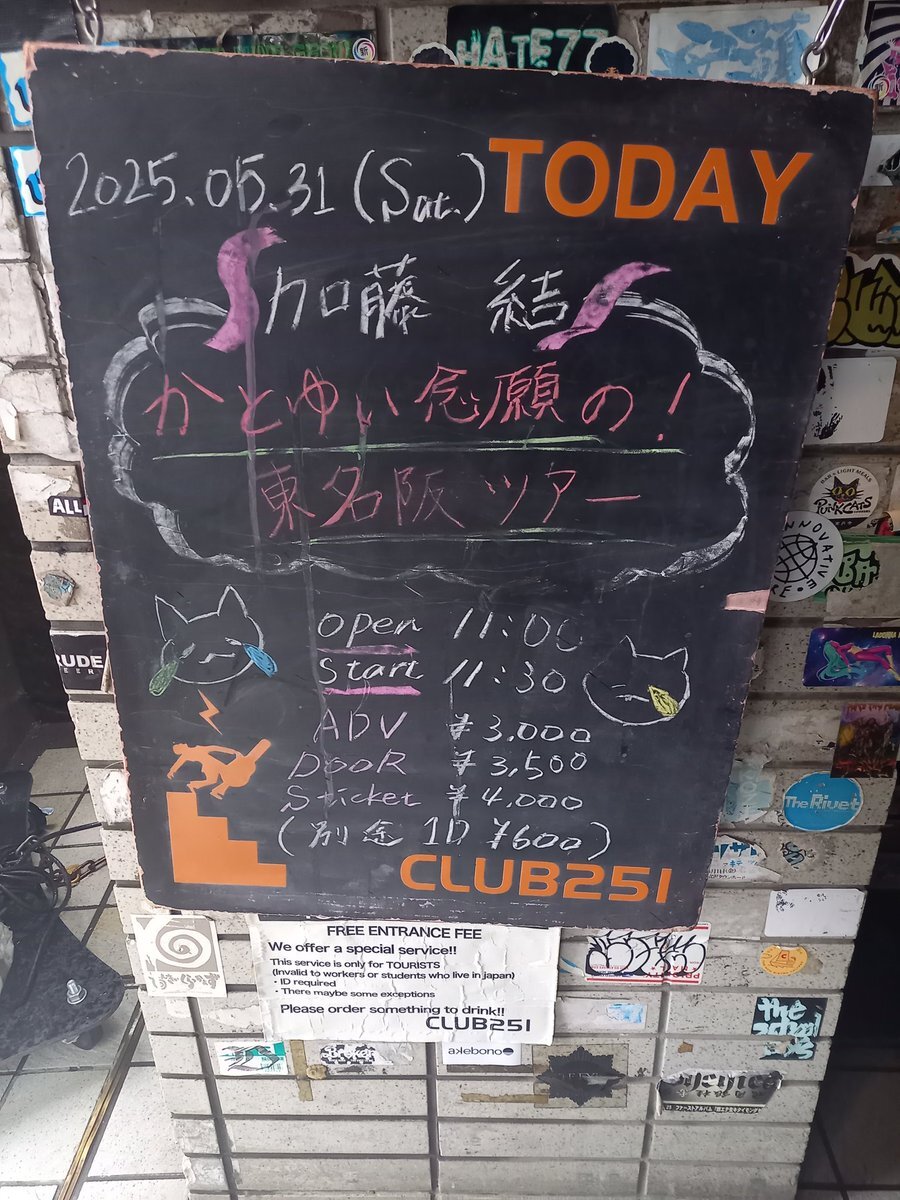 HATE77
2025.05.31 (Sat.) TODAY
加藤 結
かとゆい念願の！
東名阪ツアー
open 11:00
Start 11:30
ADV ¥3,000
DOOR ¥3,500
Sticket ¥4,000
(別途 1D ¥600)
CLUB251
FREE ENTRANCE FEE
We offer a special service!!
This service is only for TOURISTS
(Invalid to workers or students who live in japan)
・ID required
・There maybe some exceptions
Please order something to drink!!
CLUB251
ALL
RUDE
PUNKCATS
INNOVATIVE
The Rivet
the school
akebono
ファーストアルバム